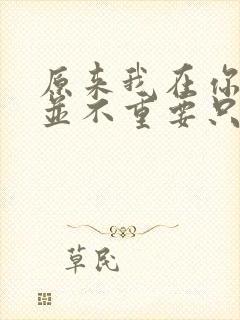 原来我在你
並不重要只
草民